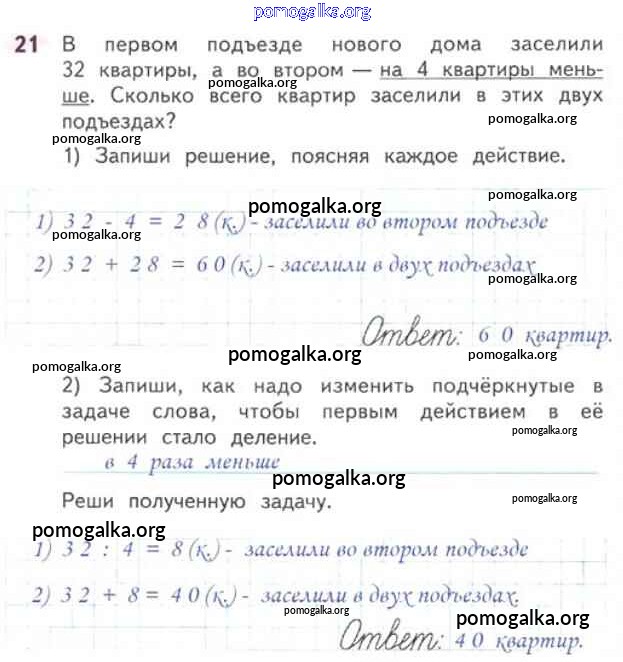 pomogalka.org
21 В первом подъезде нового дома заселили
32 квартиры, а во втором — на 4 квартиры мень-
pomogalka.org
ше. Сколько всего квартир заселили в этих двух
pomogalka.org
подъездах?
pomogalka.org
1) Запиши решение, поясняя каждое действие.
pomogalka.org
pomogalka.org
1) 32 - 4 = 28 (к.) - заселили во втором подъезде
pomogalka.org
2) 32 + 28 = 60 (к.) - заселили в двух подъездах
pomogalka.org
Ответ: 60 квартир.
pomogalka.org
pomogalka.org
pomogalka.org
2) Запиши, как надо изменить подчёркнутые в
задаче слова, чтобы первым действием в её
решении стало деление.
pomogalka.org
в 4 раза меньше
pomogalka.org
Реши полученную задачу.
pomogalka.org
pomogalka.org
1) 32 : 4 = 8 (к.) - заселили во втором подъезде
2) 32 + 8 = 40 (к.) - заселили в двух подъездах.
pomogalka.org
pomogalka.org
Ответ: 40 квартир.
pomogalka.org